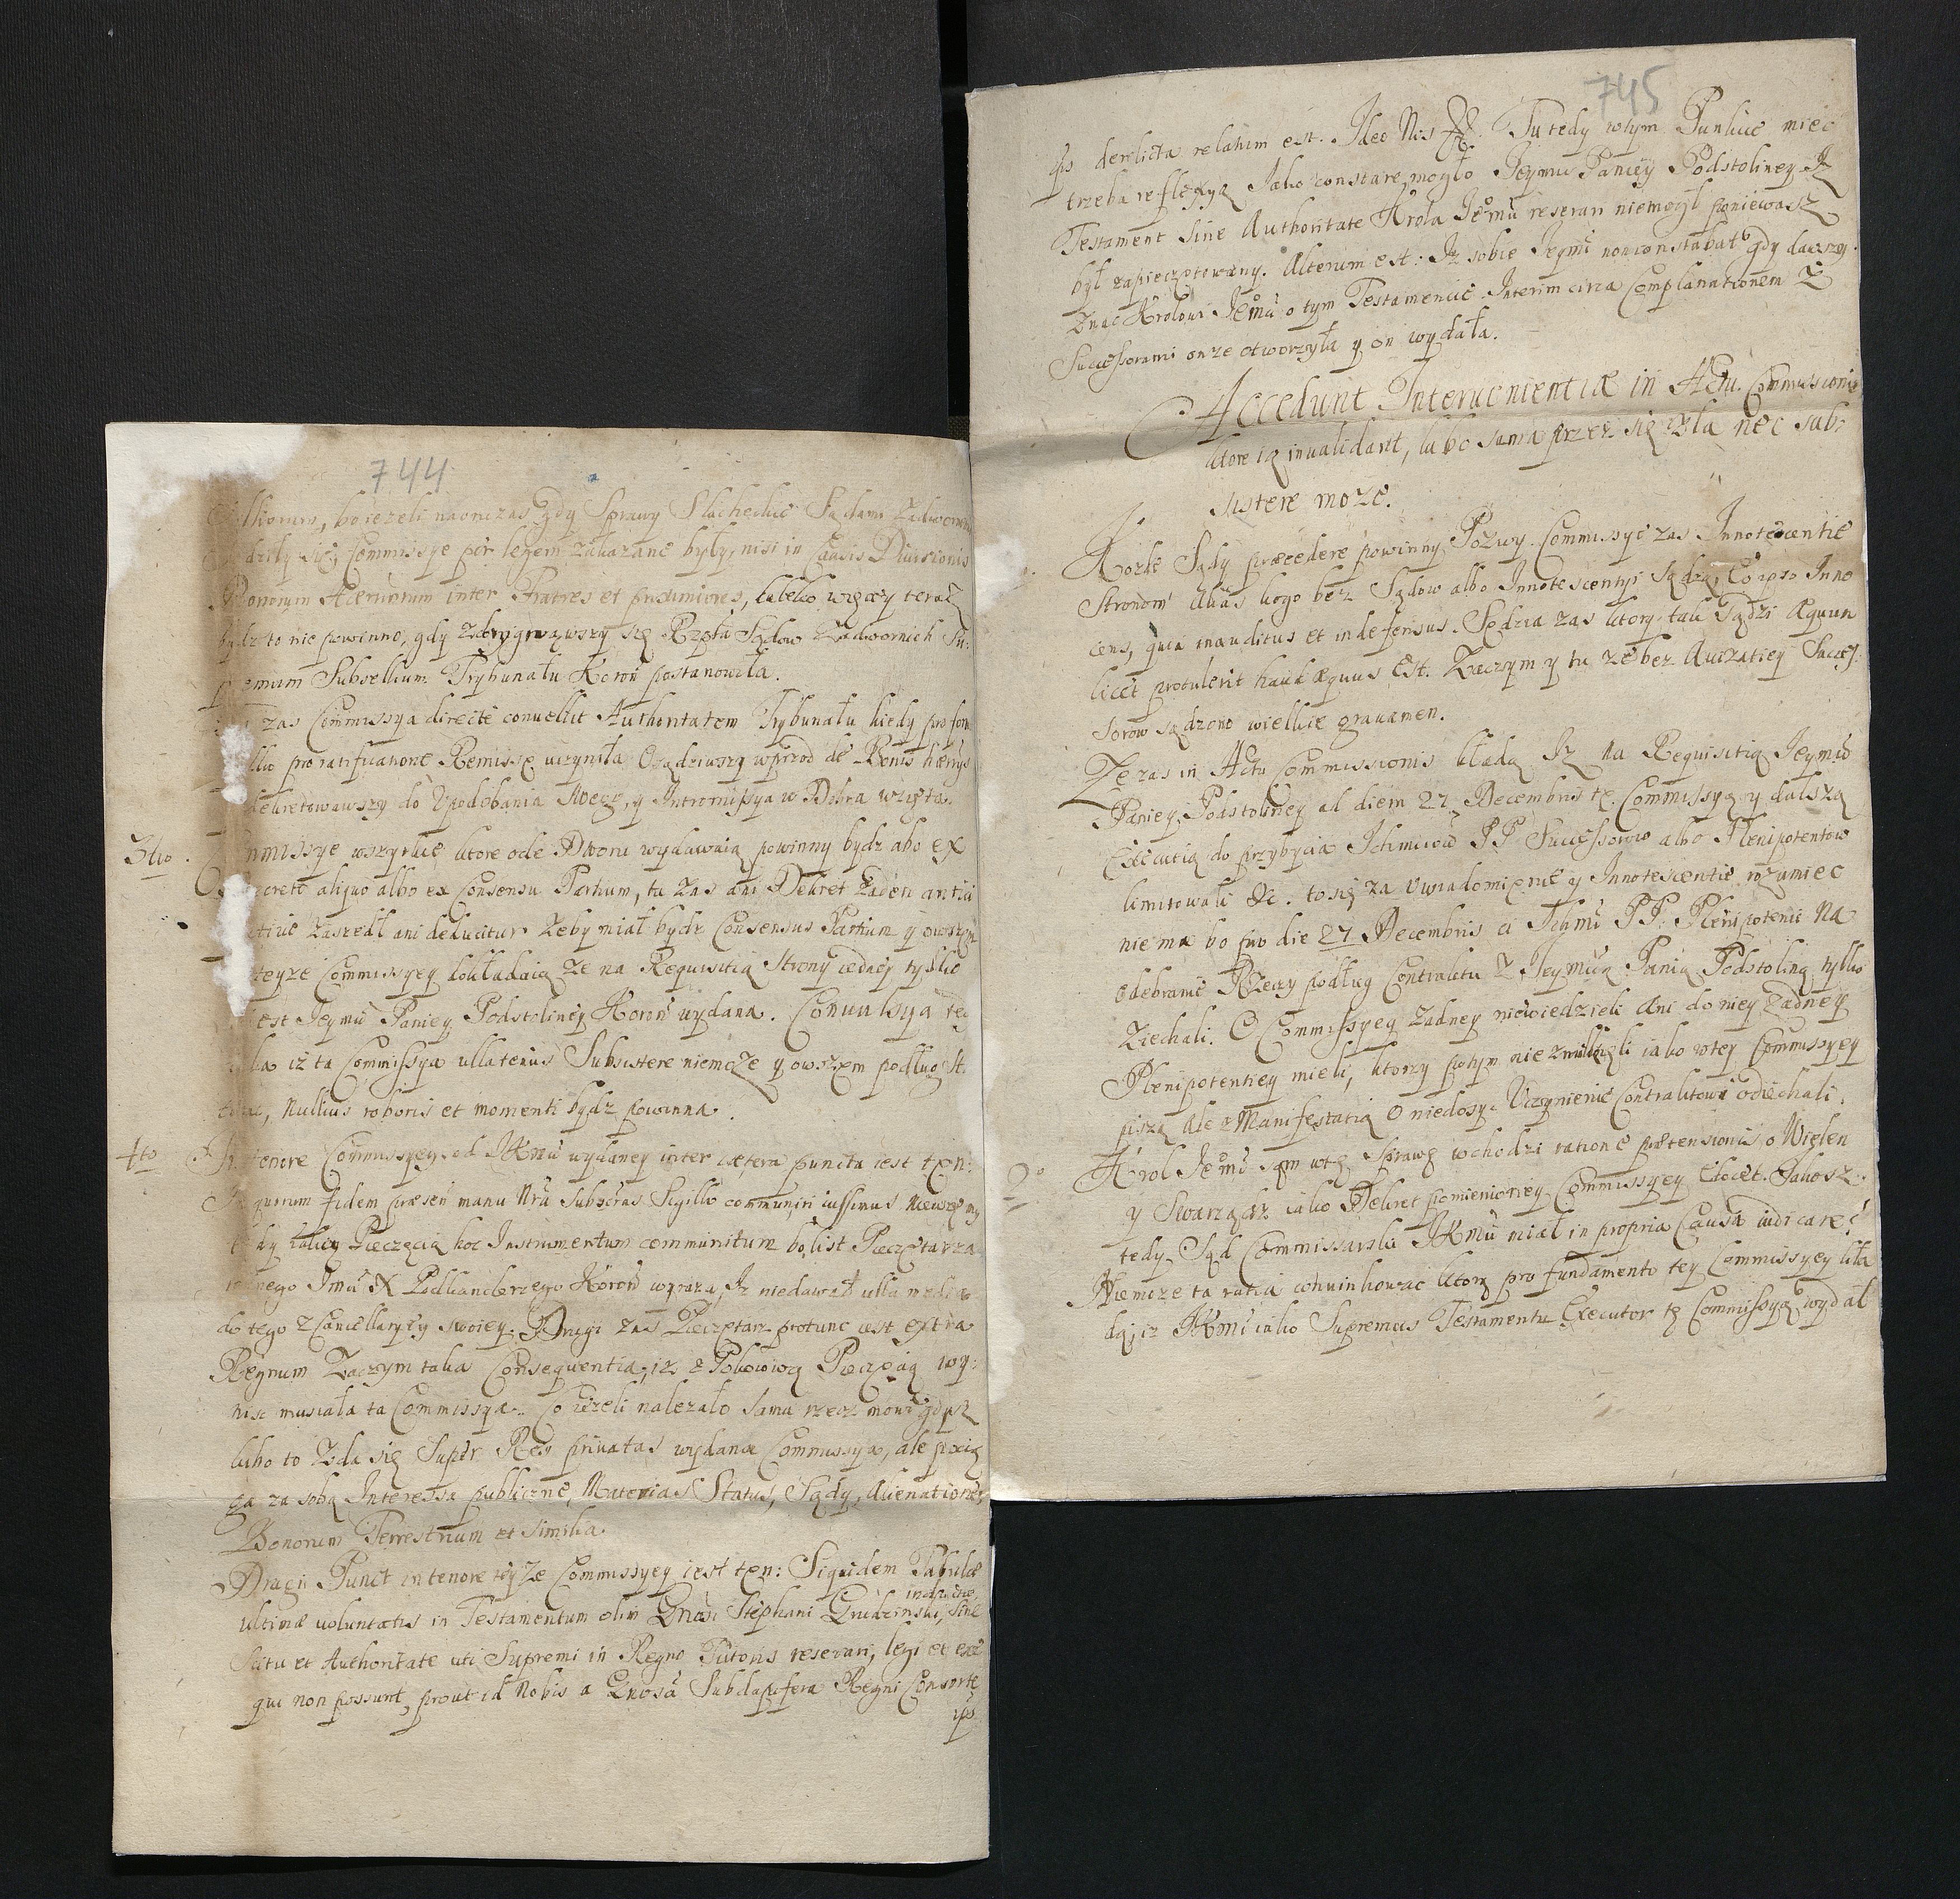 744
lliorum, bo iezeli naonczas gdy Sprawy Slacheckie Sądami Zadwornemi
dziły się, Commissye per legem zakazane były, nisi in Causis Divisionis
Bonorum inter Fratres et, teraz
bydz to nie powinno, gdy zdezygnowawszy się Rzplta Sądow Zadwornich Su:
premum Subsellium Trybunału Koroñ postanowiła.
zas Commissya directe convellit Authoritatem Trybunału kiedy pro fo
pro ratificatione Remissę uczyniła Osądziwszy wprzod de Bonis
dekretowawszy do Upodobania Swego, y Intromissya w Dobra wzięta.
3tio. Commissye wszytkie ktore ode Dworu wydawaią powinny bydz abo ex
Decreto aliquo albo ex Consensu Partium, tu zas ani Dekret zaden
zaszedł ani deducitur zeby miał bydz Consensus Partium y owszem
teyze Commissyey dokładaią ze na Requisitią Strony iedney tylko
iest Jeymci Paniey Podstoliney Koroñ wydana. Convulsya te
iż ta Commissya ullatenus Subsistere niemoże y owszem podług
nullius roboris et momenti bydz powinna.
4to In tenore Commissyey od JKMci wydaney inter cætera puncta iest tęn:
In quorum fidem præseñ manu Nrã Subscras Sigillo communiri iussimus
Pieczęcią hoc Instrumentum communitum bo list Pieczętarza
iednego Jmci X Podkanclerzego Koroñ wyraza, Iz niedawał ulla
do tego z Cancellaryiy swoiey. Drugi zas Pieczętarz protunc iest extra
Regnum Zaczym talia Consequentia, iz Pokoiową Pieczęcią wy:
nisc musiała ta Commissya. Co iezeli nalezało sama rzecz mowi gdysz
lubo to zda się Super Res privatas wydana Commissya, ale pocią
ga za sobą Interessa publiczne, Materias Status, Sądy, Alienationes
Bonorum Terrestrium et similia.
Drugi Punct in tenore teyze Commissyey iest tęn: Siquidem Tabulæ
ultimæ voluntatis in Testamentum olim Gñosi Stephani Grudzinski, inductæ sine
Scitu et Authoritate uti Supremi in Regno Tutoris reserari, legi et exe
qui non possunt, prout id Nobis a Gñosa Subdapifera Regni Consorte
ips
745
ips derelicta relatum est. Ideo Nos &c. Tu tedy w tym Punkcie miec
trzeba reflexyą Jako constare mogło Jeymci Paniey Podstoliney Iz
Testament sine Authoritate Krola Jemci reserari niemogł poniewasz
był zapieczętowany. Alterum est: Iz sobie Jeymci non constabat gdy dawszy
znac Krolowi Jemci o tym Testamencie Interim circa Complanationem z
Successorami onze otworzyła y on wydała.
Accedunt Intervenientiæ in Actu Commissionis
ktore ią invalidant, lubo sama przez się zła nec sub:
sistere moze.
Kozde Sądy præcedere powinny Pozwy. Commissye zas Innotescentie
Stronom Alias kogo bez Sądow albo Innotescentyi sądzą, Eo ipso Inno
cens, quia inauditus et indefensus. Sędzia zas ktory tak sądzi Æquum
licet protulerit haud æquus Est. Zaczym y tu ze bez Avizatiey Succes:
sorow sądzono wielkie gravamen.
Ze zas in Actu Commissionis kładą Iz na Requisitią Jeymci
Paniey Podstoliney ad diem 27 Decembris tę Commissyą y dalszą
Executią do przybycia Ichmciow PP Successorow albo Plenipotentow
limitowali &c. to się za Uwiadomienie y Innotescentie rozumiec
niema bo pro die 27 Decembris ci Ichmci PP: Plenipotenci Na
odebranie Rzeczy podług Contraktu z Jeymcią Panią Podstoliną tylko
ziechali. O Commissyey zadney niewiedzieli Ani do niey zadney
Plenipotentiey mieli, ktorzy potym nie iako w tey Commissyey
piszą Ale Manifestatią O niedosyc Uczynienie Contraktowi odiechali.
2o Krol Jemci sam w tę Sprawę wchodzi ratione prætensionis o Wielen
y Swarządz iako Dekret pomienioney Commissyey Edocet. Jakosz
tedy Sąd Commissarski JKMci miał in propria Causa iudicare?
Niemoze ta ratia ktorą pro fundamento tey Commissyey kła
dą, iz JKMci iako Supremus Testamentu Executor tę Commissyą wydał